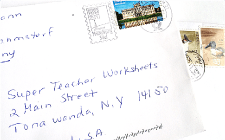 onn
nmasterf
ny
Super Teacher Worksheets
2 Main Street
Tonawanda, N.Y 14150
USA